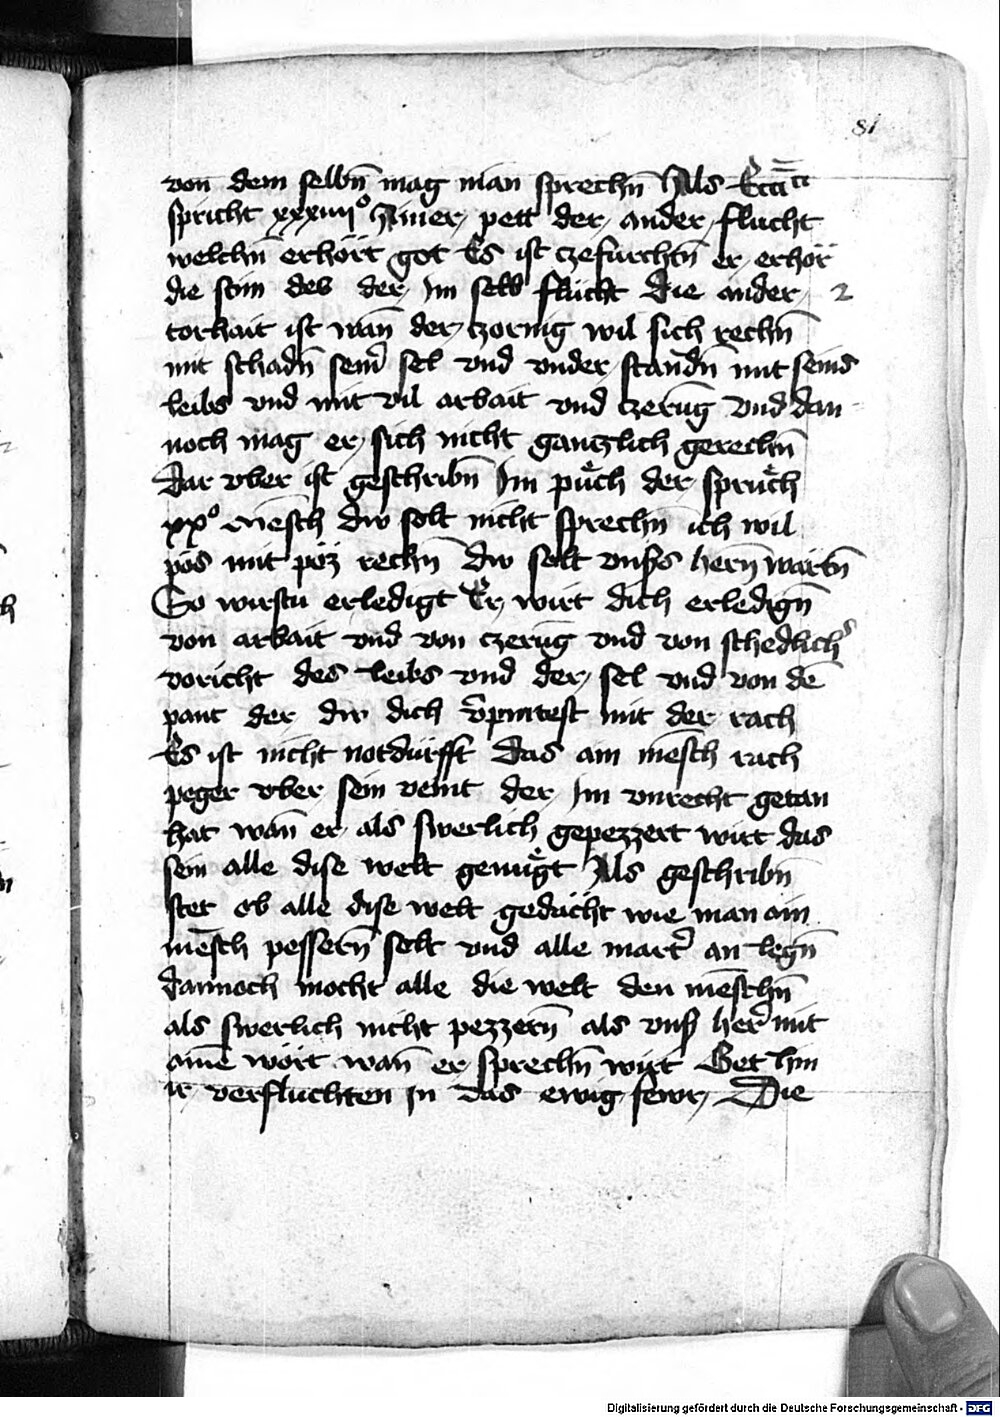 81
von dem selbn̄ mag man sprechn̄ Als Ecc̄ci
spricht xxxiiiiº Ainer pett der ander flucht
welchn̄ erhört got Es ist czefürchtn̄ er erhör
die stim des der Im selb flücht Die ander 2
torhait ist wan̄ der czornig wil sich rechn̄
mit schadn̄ sein̄ sel vnd vnder standn̄ mit seins
leibs vnd mit vil arbait vnd czerūg vnd dan
noch mag er sich nicht gantzlich gerechn̄
Dar vber ist geschribn̄ Im puͤch der spruͤch
xxº Mēsch dw solt nicht sprechn̄ ich wil
pös mit pöz rechn̄ dw solt vnsers hern̄ wartn̄
So wirstu erledigt Er wirt dich erledign̄
von arbait vnd von czerūg vnd von schedlich
voricht des leibs vnd der sel vnd von dē
pant der dw dich v̄pintest mit der rach
Es ist nicht notdürfft Das ain mēsch rach
peger vber sein veint der Im vnrecht getan
hat wan̄ er als swerlich gepezzert wirt das
sein alle dise welt genuͤgt Als geschribn̄
stet ob alle dise welt gedächt wie man ain
mēsch pessern̄ solt vnd alle mart̄ an legn̄
dannoch mocht alle die welt den mēschn̄
als swerlich nicht pezzern̄ als vnser her mit
aine wört wan̄ er sprechn̄ wirt Get hin
ir verfluchten In das ewig fewr Die
Digitalisierung gefördert durch die Deutsche Forschungsgemeinschaft - DFG